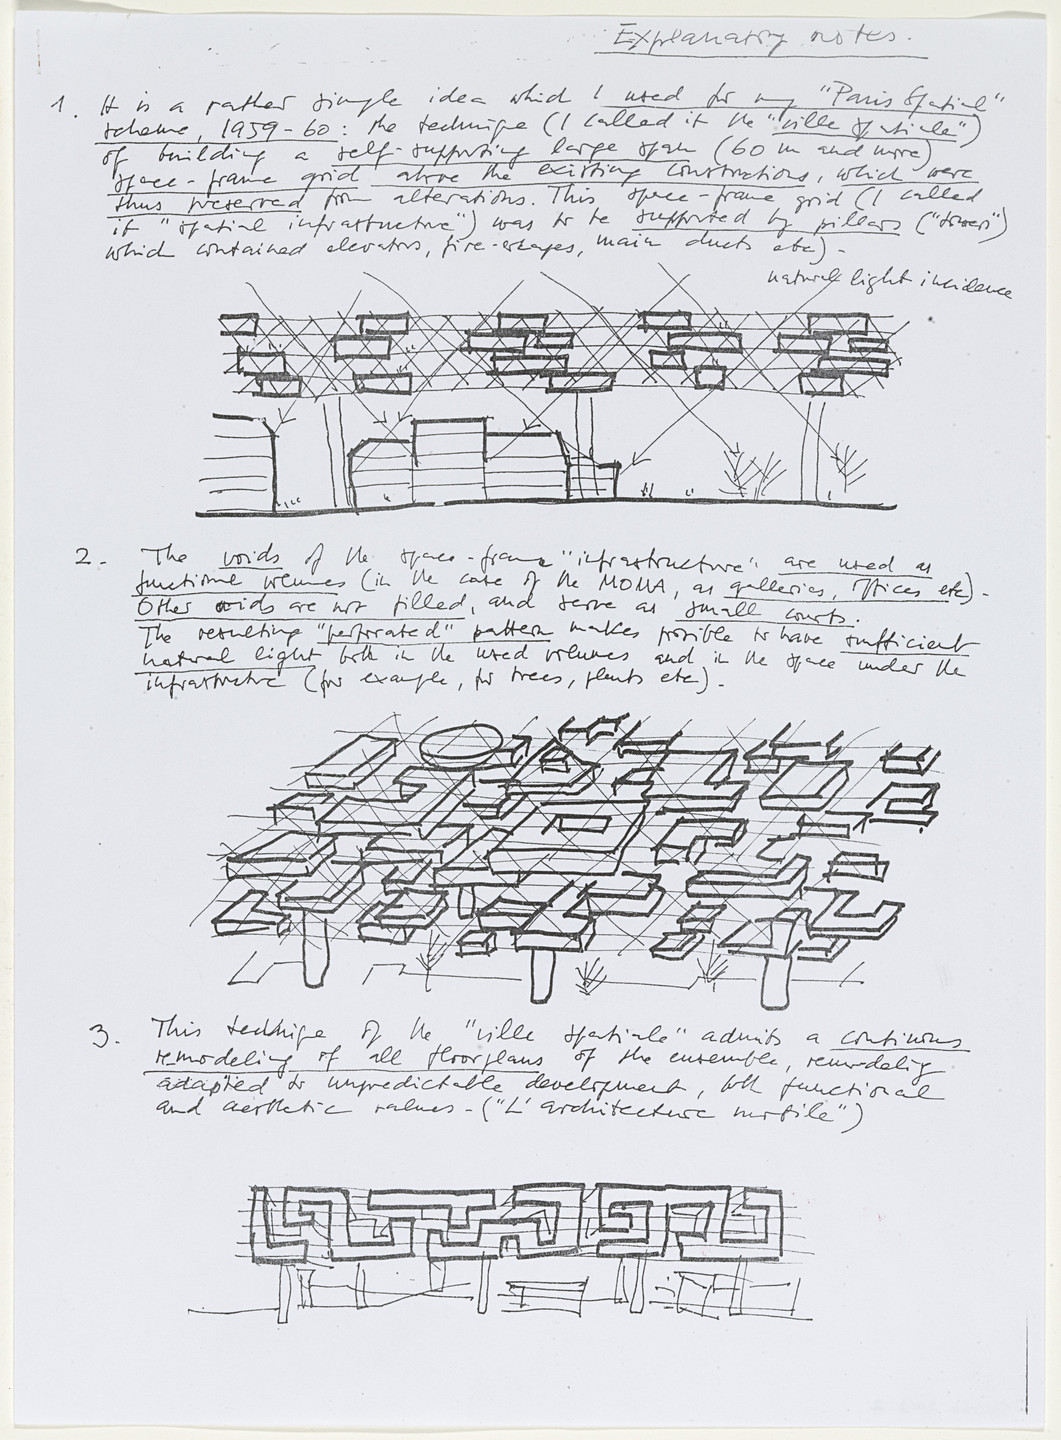 Explanatory notes.
1. It is a rather simple idea which I used for my "Paris Spatial"
scheme, 1959-60: the technique (I called it the "ville spatiale")
of building a self-supporting large span (60 m and more)
space-frame grid above the existing constructions which were
thus preserved from alterations. This space-frame grid (I called
it "spatial infrastructure") was to be supported by pillars ("towers")
which contained elevators, fire-escapes, main ducts etc).
natural light incidence
2. The voids of the space-frame "infrastructure" are used as
functional volumes (in the case of the MOMA, as galleries, offices etc).
Other voids are not filled, and serve as small courts.
The resulting "perforated" pattern makes possible to have sufficient
natural light both in the used volumes and in the space under the
infrastructure (for example, for trees, plants etc).
3. This technique of the "ville spatiale" admits a continuous
remodeling of all floorplans of the ensemble, remodeling
adapted to unpredictable development, both functional
and aesthetic values - ("L'architecture mobile")